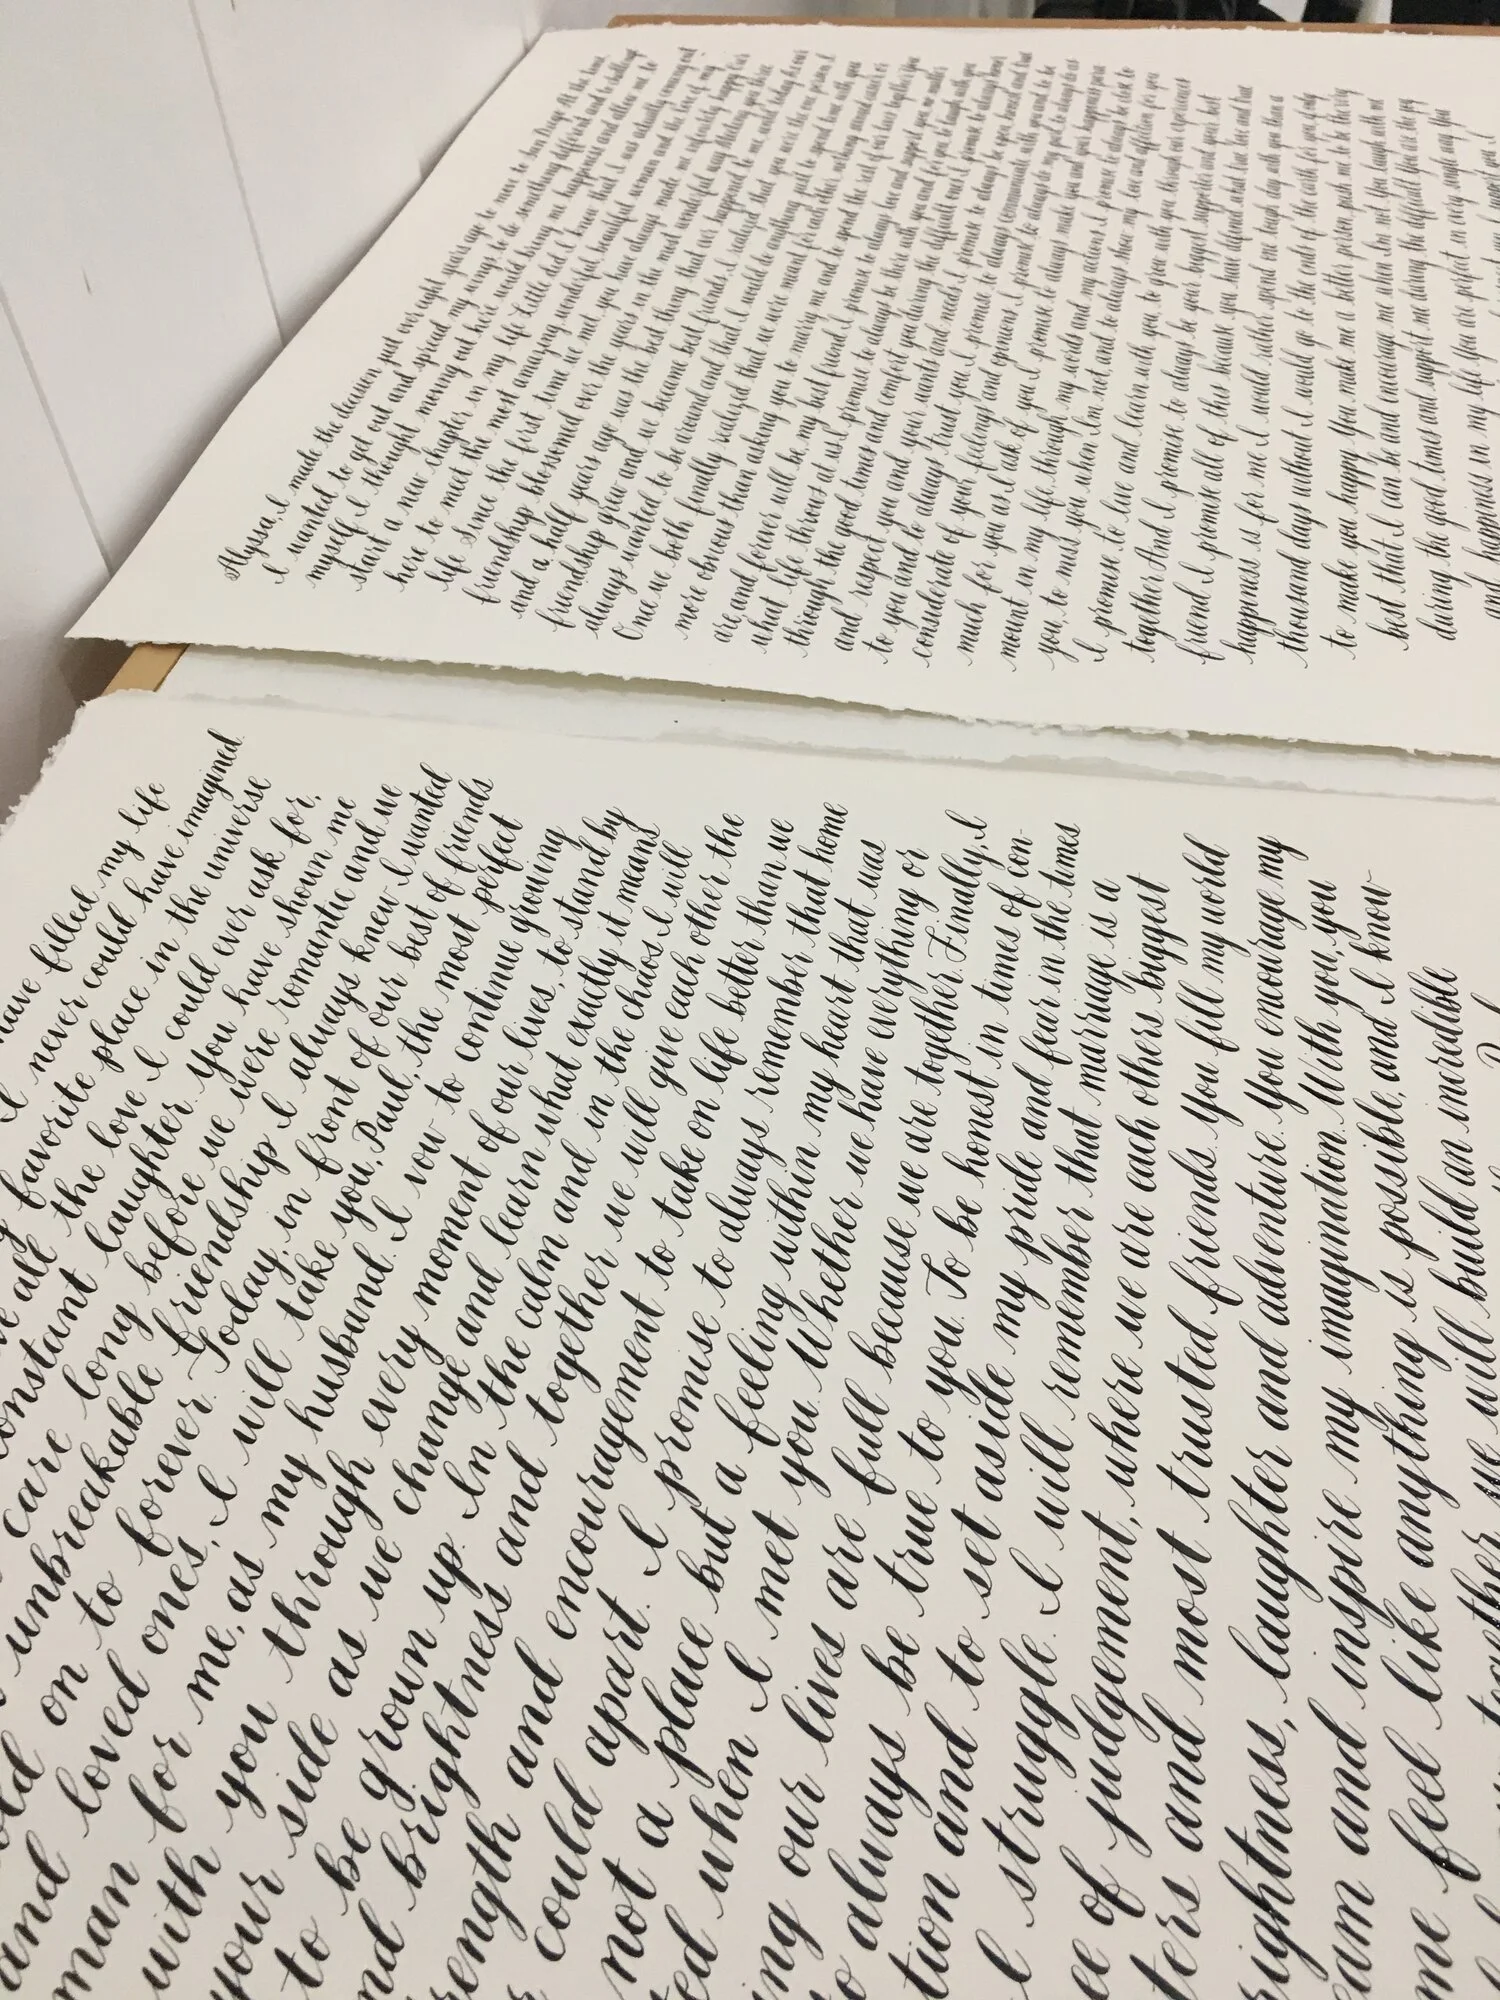 Alyssa, I made the decision just over eight years ago to move to San Diego. At the time
I wanted to get out and spread my wings, to do something different and to challenge
myself. I thought moving out here would bring me happiness and allow me to
start a new chapter in my life. Little did I know that I was actually coming out
here to meet the most amazing, wonderful, beautiful woman and the love of my
life. Since the first time we met you have always made me infinitely happy. Our
friendship blossomed over the years in the most wonderful way. Meeting you three
and a half years ago was the best thing that ever happened to me, until today. As our
friendship grew and we became best friends, I realized that you were the one person I
always wanted to be around and that I would do anything just to spend time with you
Once we both finally realized that we were meant for each other, nothing
more obvious than asking you to marry me and to spend the rest of our lives together. You
are and forever will be my best friend. I promise to always love and support you no matter
what life throws at us. I promise to always be there with you and for you, to laugh with you
through the good times and comfort you during the difficult ones. I promise to always honor
and respect you and your wants and needs. I promise to always be open, honest and true
to you and to always trust you. I promise to always communicate with you and to be
considerate of your feelings and opinions. I promise to always to my part to always do as
much for you as I ask of you. I promise to always make you and your happiness para
mount in my life, through my words and my actions. I promise to always be close to
you, to miss you when I'm not, and to always show my love and affection for you
I promise to live and learn with you, to grow with you through our experiences
together. And I promise to always be your biggest supporter and your best
friend. I promise all of this because you have defined what true love and true
happiness is for me. I would rather spend one tough day with you than a
thousand days without. I would go to the ends of the earth for you if only
to make you happy. You make me a better person, push me to be the very
best that I can be and encourage me when I'm not. You laugh with me
during the good times and support me during the difficult. You are the joy
and happiness in my life. You are perfect in every single way. You
have filled my life
I never could have imagined.
favorite place in the universe
all the love I could ever ask for,
constant laughter. You have shown me
care long before we were romantic and we
unbreakable friendship I always knew I wanted
on to forever. Today, in front of our best of friends
and loved ones, I will take you, Paul, the most perfect
man for me, as my husband. I vow to continue growing
with you through every moment of our lives, to stand by
your side as we change and learn what exactly it means
to be grown up. In the calm and in the chaos I will
brightness and together we will give each other the
and encouragement to take on life better than we
could apart. I promise to always remember that home
not a place but a feeling within my heart that was
when I met you. Whether we have everything or
our lives are full because we are together. Finally, I
always be true to you. To be honest in times of con-
tion and to set aside my pride and fear in the times
I struggle. I will remember that marriage is a
of judgement, where we are each others biggest
and most trusted friends. You fill my world
laughter and adventure. You encourage my
and inspire my imagination. With you, you
me feel like anything is possible, and I know
together we will build an incredible